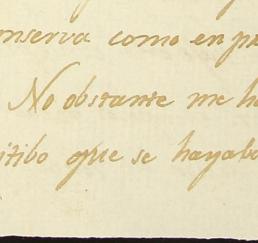 nserva como en pe
No obstante me ha
itibo que se hayaba